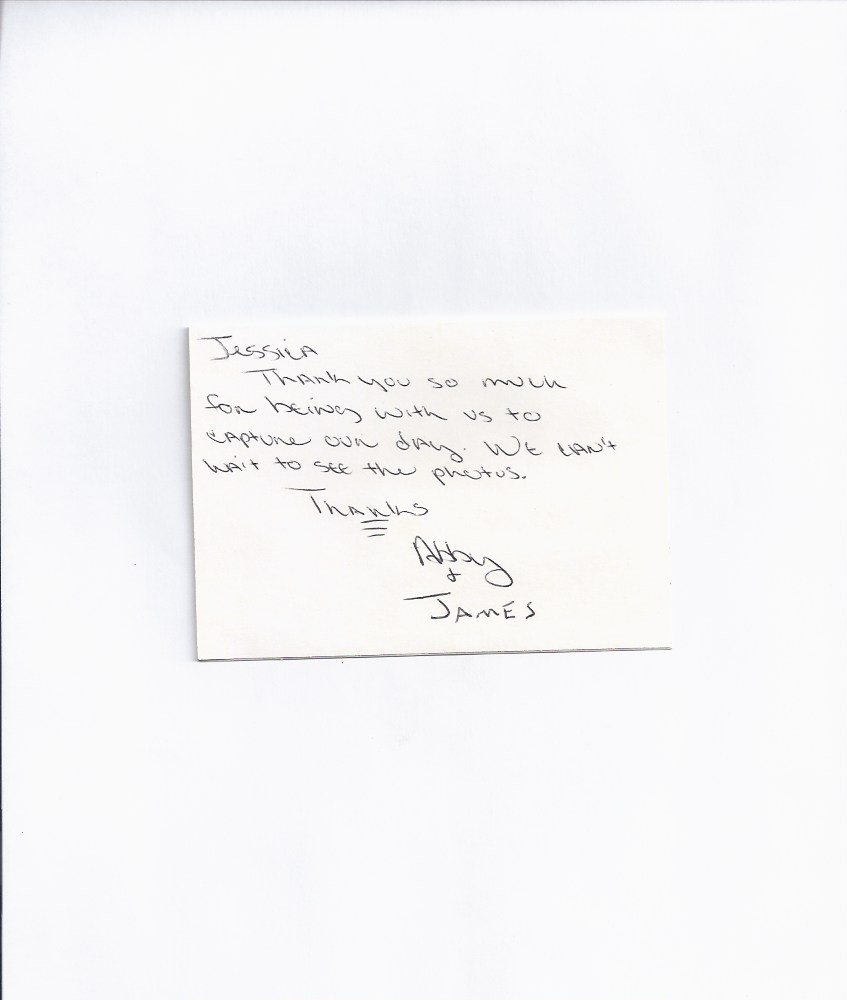 Jessica
Thank you so much
for being with us to
capture our day. We can't
wait to see the photos.
Thanks
Abby
+
James